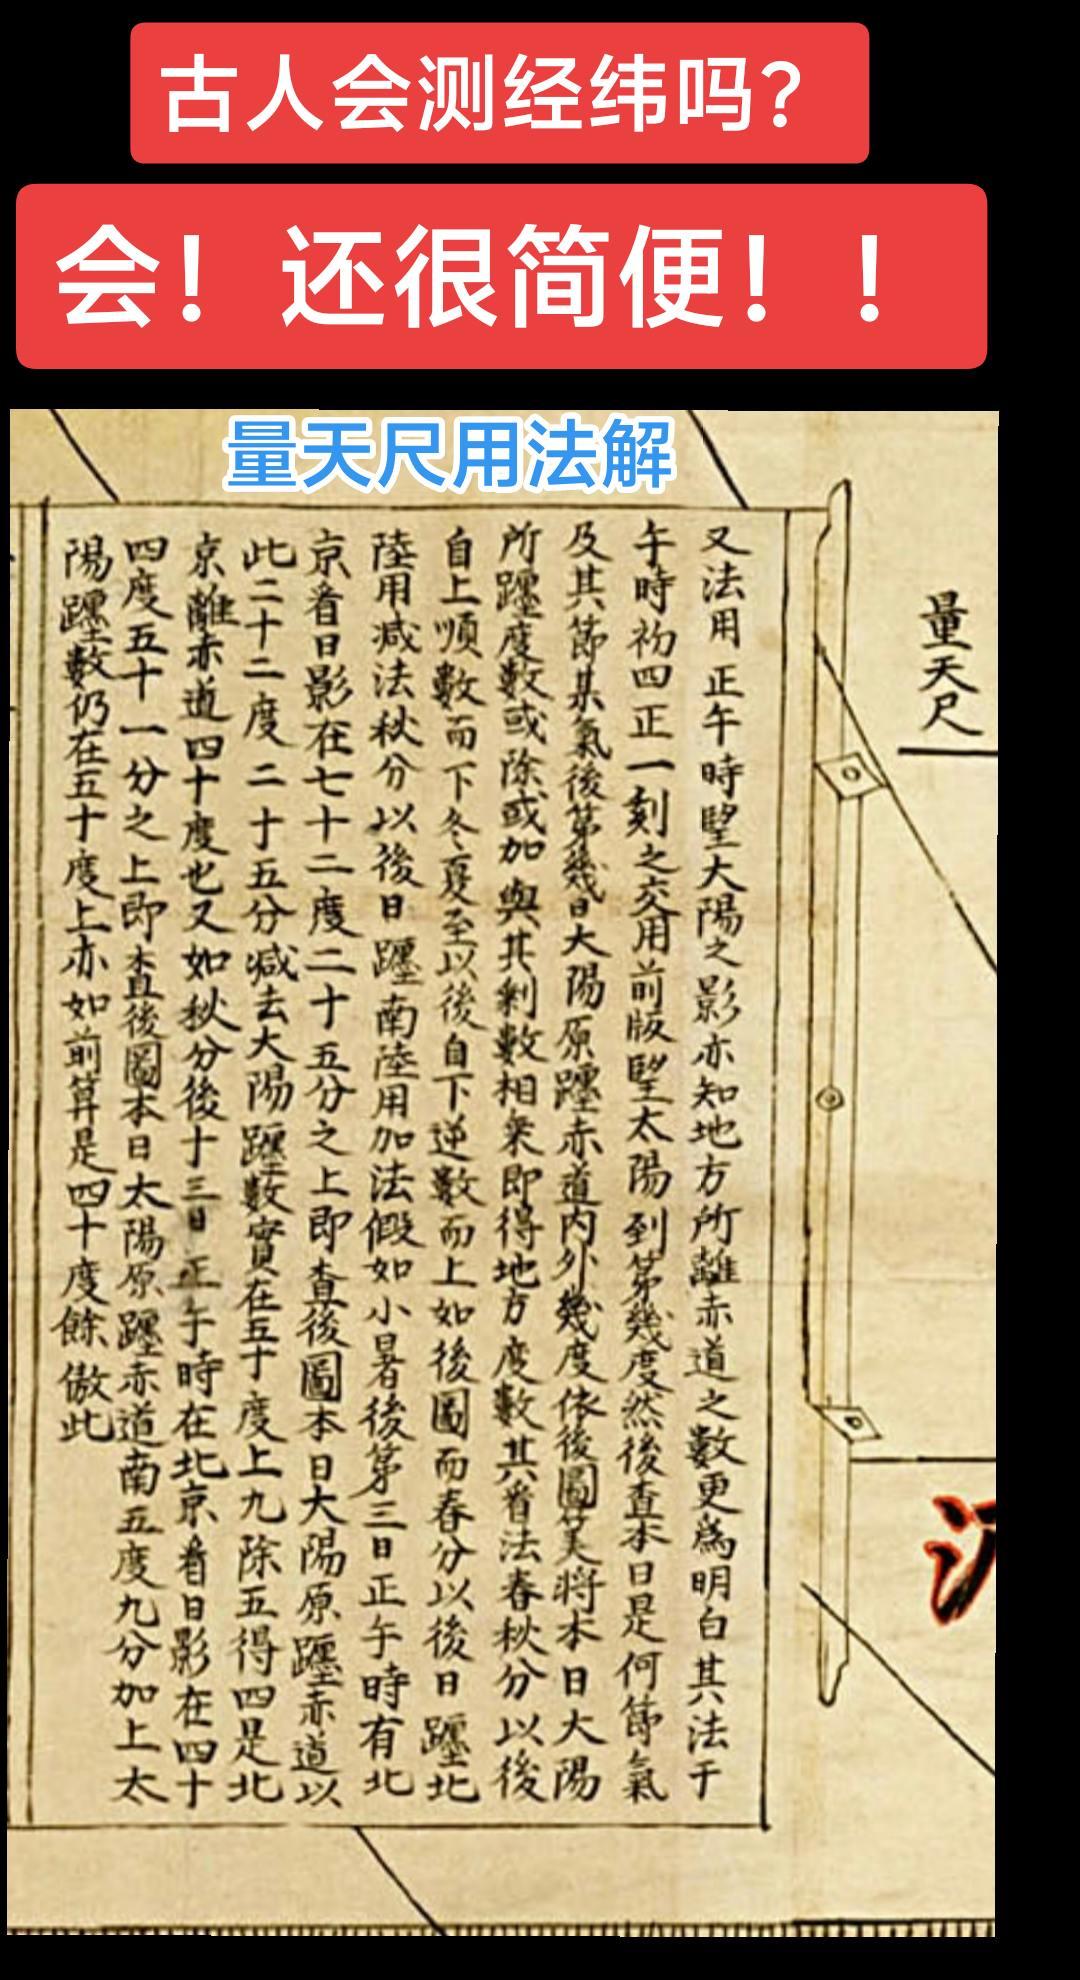 古人会测经纬吗？
会！还很简便！！
量天尺用法解
量天尺
又法用正午時望大陽之影亦知地方所離赤道之數更爲明白其法于
午時初四正一刻之交用前版望太陽到第幾度然後查本日是何節氣
及其節某氣後第幾日大陽原躔赤道内外幾度依後圖筭將本日大陽
所躔度數或除或加與其剩數相乘即得地方度數其看法春秋分以後
自上順數而下冬夏至以後自下逆數而上如後圖而春分以後日躔北
陸用减法秋分以後日躔南陸用加法假如小暑後第三日正午時有北
京看日影在七十二度二十五分之上即查後圖本日大陽原躔赤道以
此二十二度二十五分减去大陽躔數實在五十度上九除五得四是北
京離赤道四十度也又如秋分後十三日正午時在北京看日影在四十
四度五十一分之上即查後圖本日太陽原躔赤道南五度九分加上太
陽躔數仍在五十度上亦如前算是四十度餘倣此